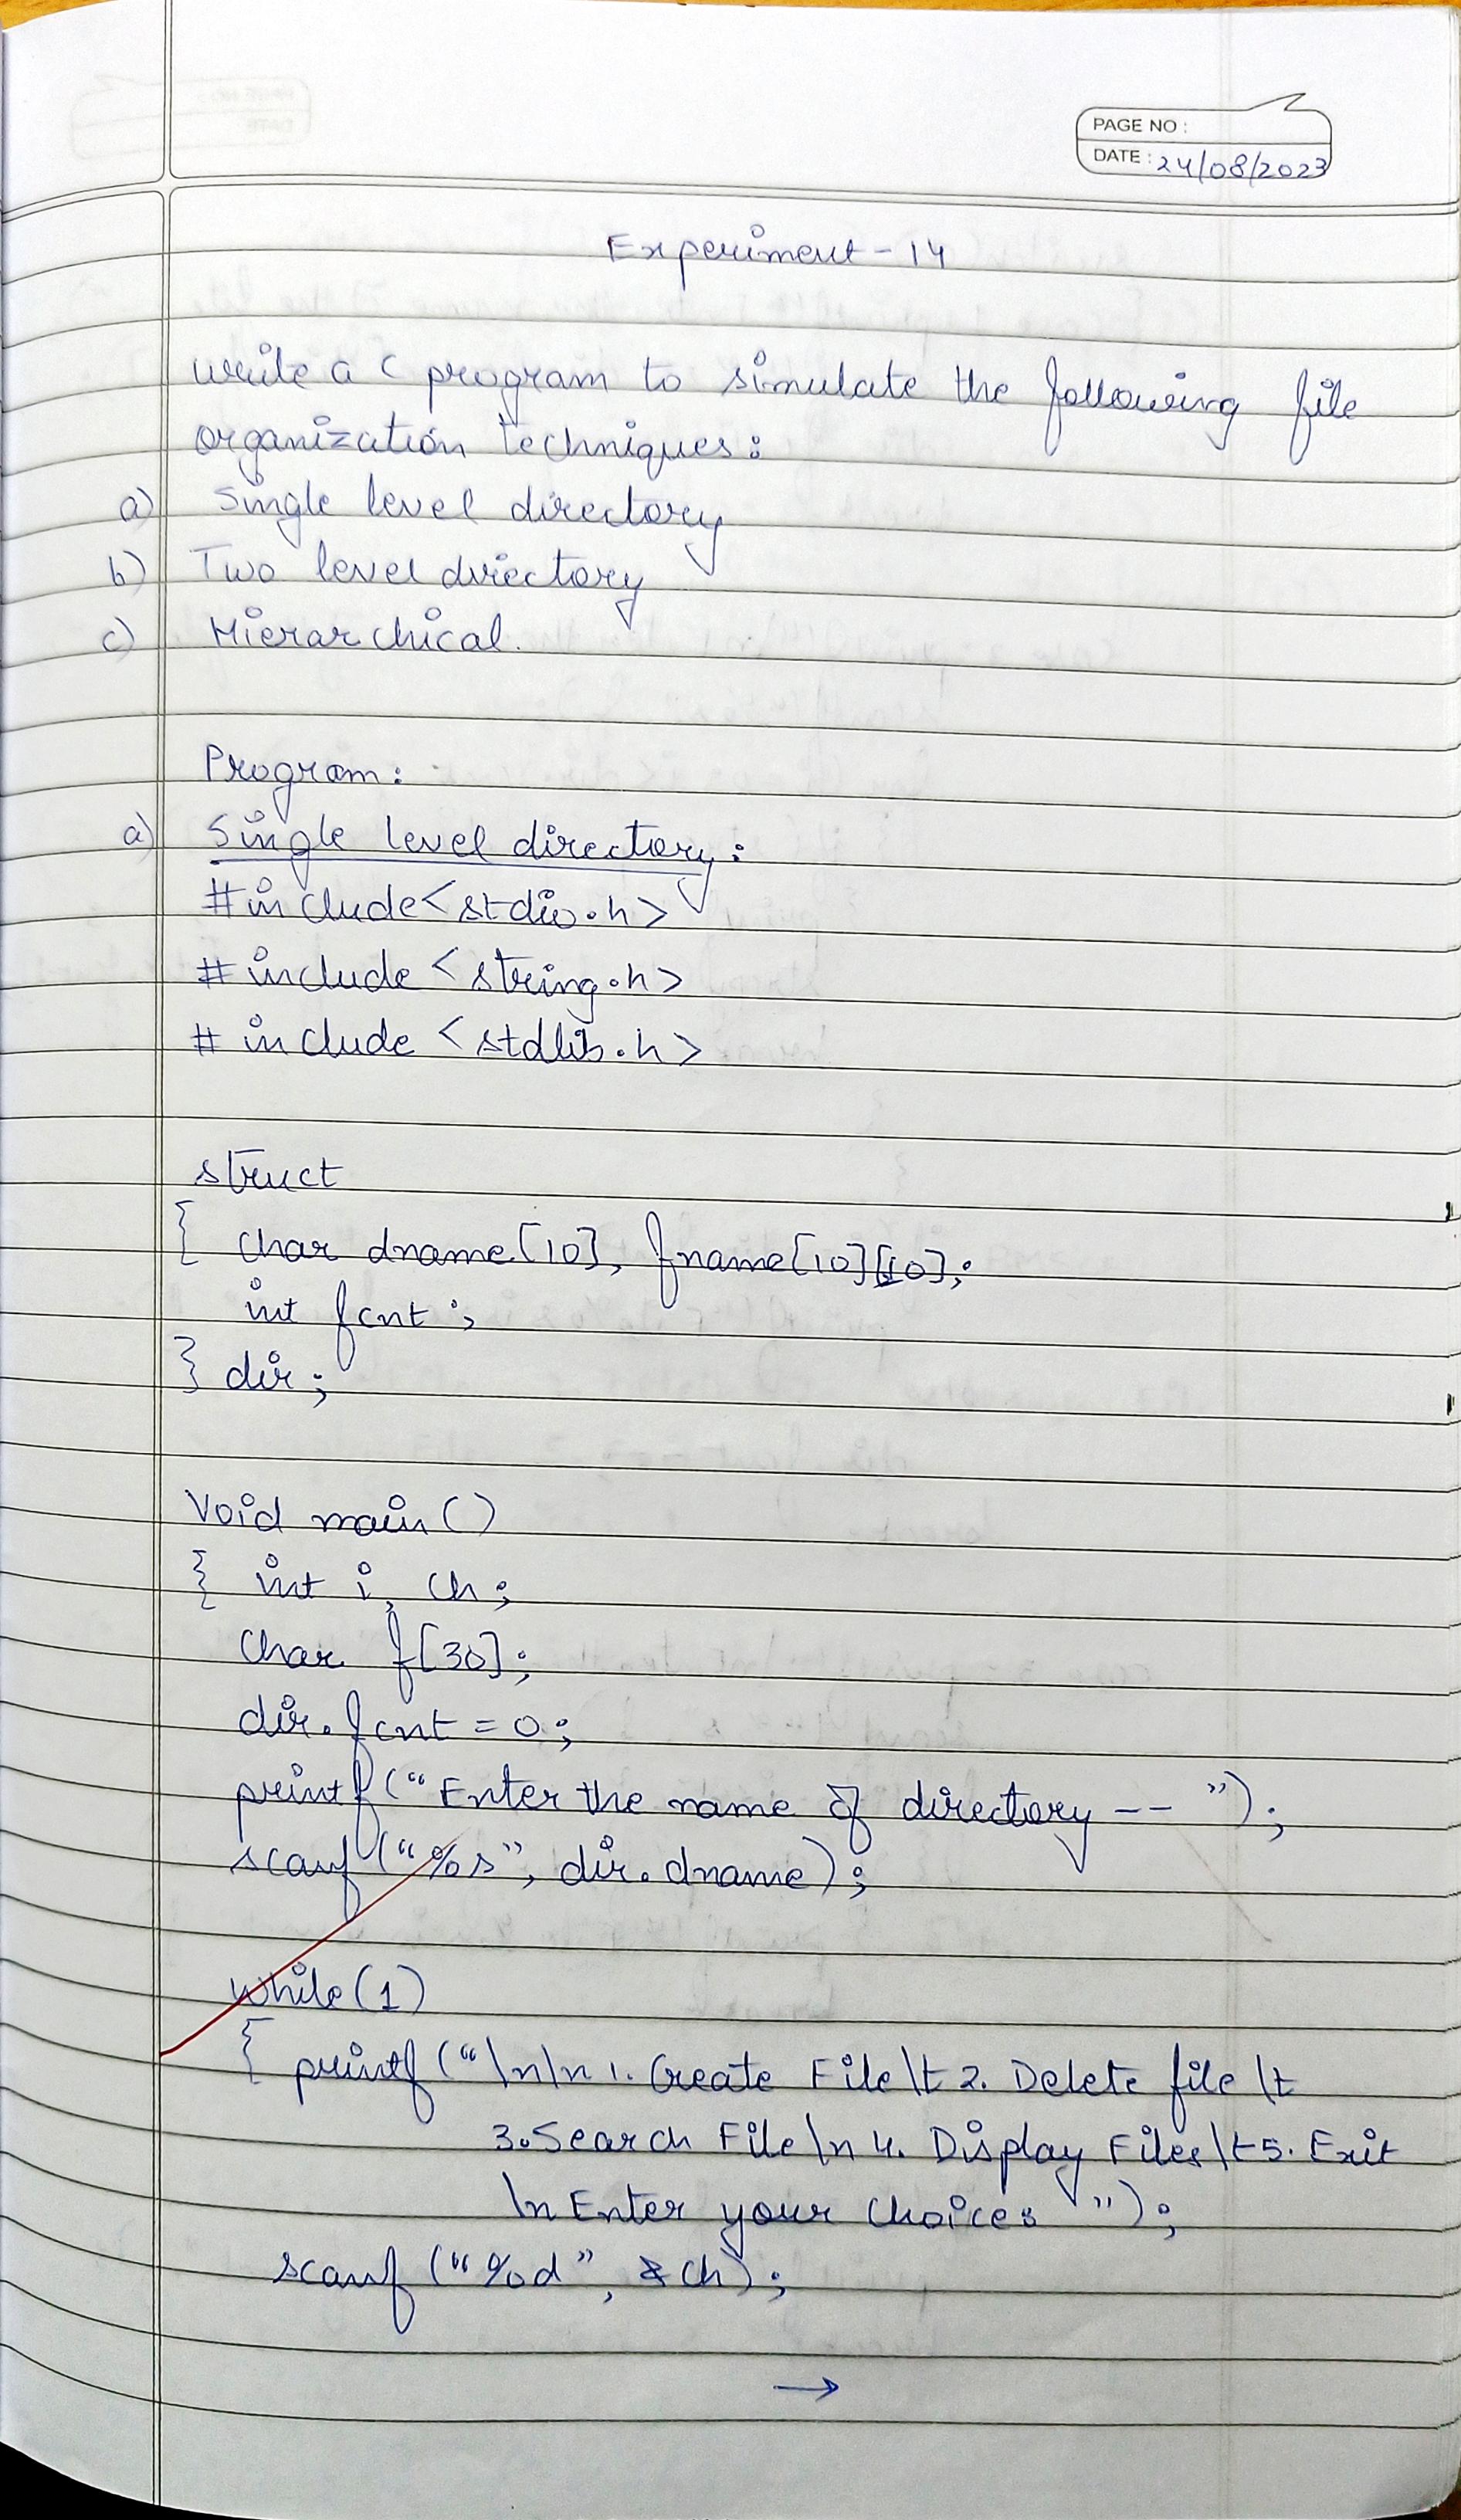 PAGE NO :
DATE : 24/08/2023
Experiment - 14
write a C program to simulate the following file
organization techniques:
a) Single level directory
b) Two level directory
c) Hierarchical.
Program:
a) Single level directory:
#include<stdio.h>
# include <string.h>
# include <stdlib.h>
struct
{ char dname[10], fname[10][10];
int fcnt;
} dir;
Void main()
{ int i, ch;
char f[30];
dir.fcnt = 0;
printf("Enter the name of directory -- ");
scanf("%s", dir.dname);
while(1)
{ printf("\n\n 1. Create File\t 2. Delete file \t
3. Search File\n 4. Display Files\t 5. Exit
\n Enter your choice: ");
scanf("%d", &ch);
→